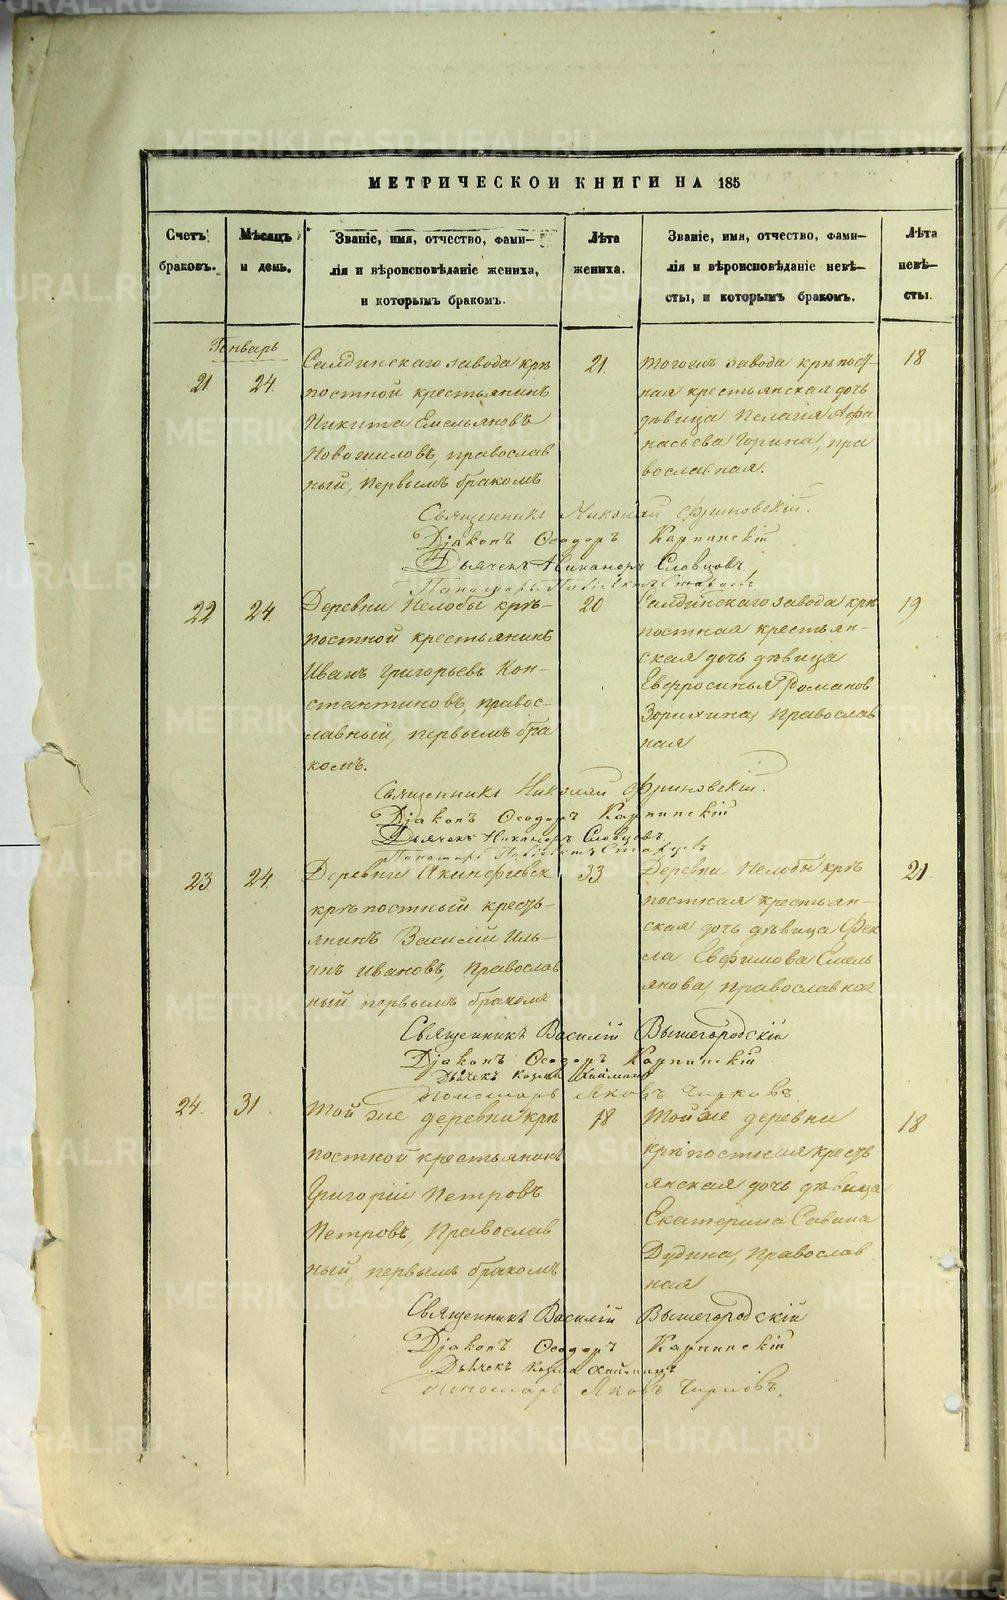 МЕТРИЧЕСКОЙ КНИГИ НА 185
Счетъ браковъ.
Мѣсяцъ и день.
Званіе, имя, отчество, фами-
лія и вѣроисповѣданіе жениха,
и которымъ бракомъ.
Лѣта жениха.
Званіе, имя, отчество, фами-
лія и вѣроисповѣданіе невѣ-
сты, и которымъ бракомъ.
Лѣта невѣ-
сты.
Генварь
21 24.
Салдинскаго завода крѣ
постной крестьянинъ
Никита Емельяновъ
Новошиловъ, православ
ный, первымъ бракомъ
21.
тогожъ завода крѣпост-
ная крестьянская дочь
дѣвица Пелагія Афа
насьева Горина, пра
вославная.
18
Священникъ Николай Фриновскій.
Діаконъ Ѳеодоръ Карпинскій
Дьячекъ Никаноръ Словцовъ
Пономарь
22 24.
Деревни Нелобы крѣ-
постной крестьянинъ
Иванъ Григорьевъ Кон-
стантиновъ, правос-
лавный, первымъ бра
комъ.
20
Салдинскаго завода крѣ
постная крестьян-
ская дочь дѣвица
Евфросинья Романов
Зорихина, Православ
ная
19
Священникъ Николай Фриновскій.
Діаконъ Ѳеодоръ Карпинскій
Дьячекъ Никаноръ Словцовъ
Пономарь
23 24.
Деревни Акинфіевск
крѣпостный кресть-
янинъ Василій Иль-
инъ Ивановъ, Православ
ный первымъ бракомъ
33.
Деревни Нелобы крѣ
постная крестьян-
ская дочь дѣвица Фек
ла Евфимова Емель
янова, православная
21.
Священникъ Василій Вышегородскій
Діаконъ Ѳеодоръ Карпинскій
Дьячекъ Козма
Пономарь Яковъ Чирковъ.
24. 31.
Той же деревни крѣ
постной крестьянинъ
Григорій Петровъ
Петровъ, Православ
ный, первымъ бракомъ
18
Той же деревни
крѣпостная кресть
янская дочь дѣвица
Екатерина Савина
Дудина, Православ
ная
18
Священникъ Василій Вышегородскій
Діаконъ Ѳеодоръ Карпинскій
Дьячекъ Козма
Пономарь Яковъ Чирковъ.
METRIKI.GASO-URAL.RU